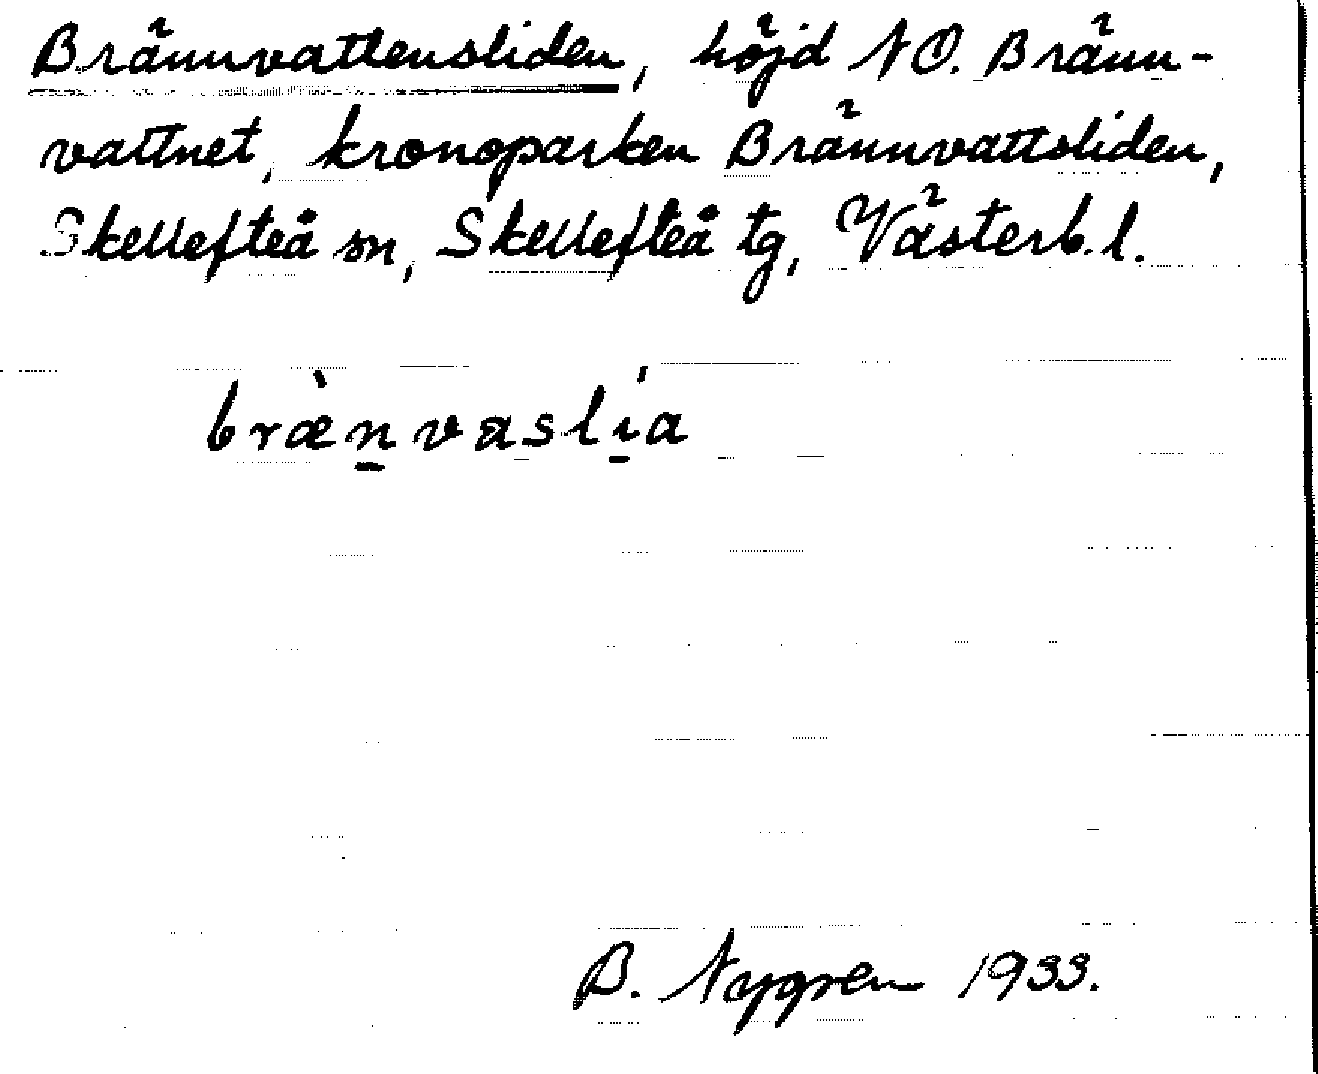 Brännvattensliden, höjd NO. Bränn-
vattnet, kronoparken Brännvattsliden,
Skellefteå sn, Skellefteå tg, Västerb. l.
bræ̀n̠vaslí̠a
B. Nygren 1933.